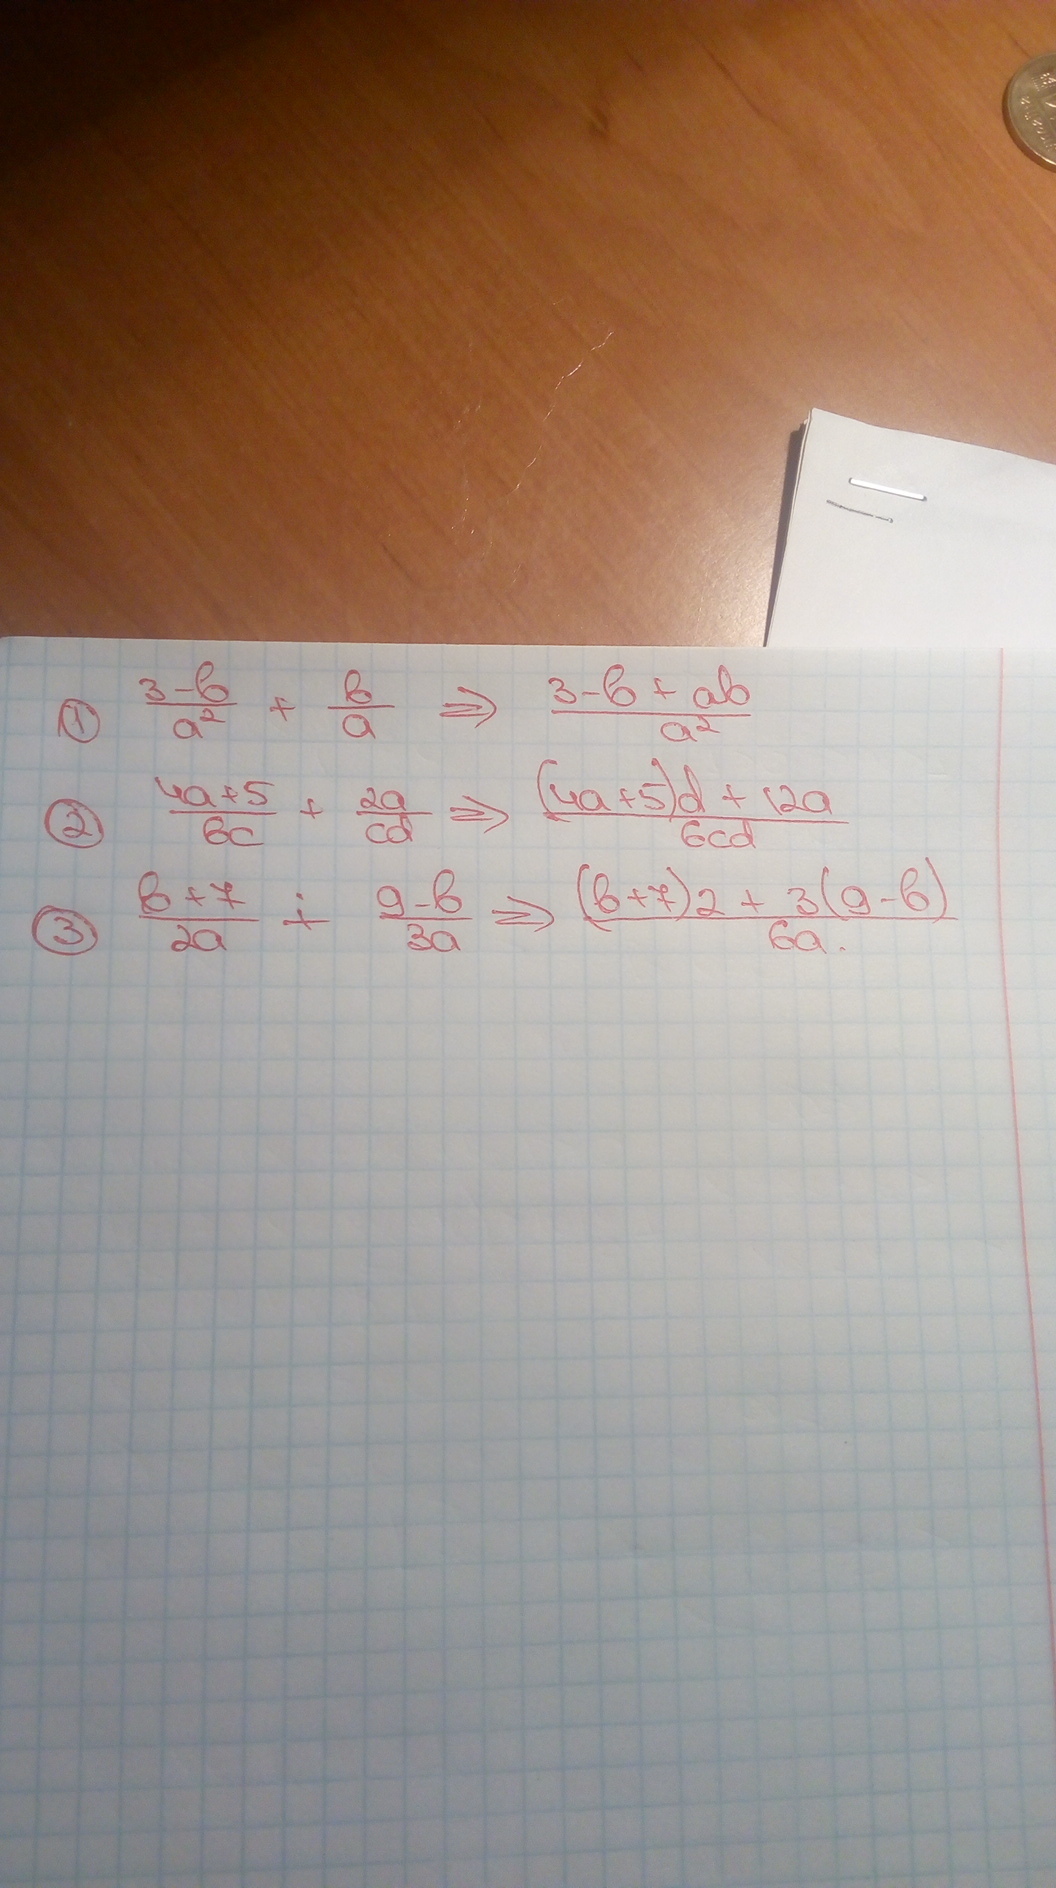 ① (3-b)/a² + b/a ⇒ (3-b+ab)/a²
② (4a+5)/6c + 2a/cd ⇒ ((4a+5)d+12a)/6cd
③ (b+7)/2a ÷ (9-b)/3a ⇒ ((b+7)2+3(9-b))/6a.